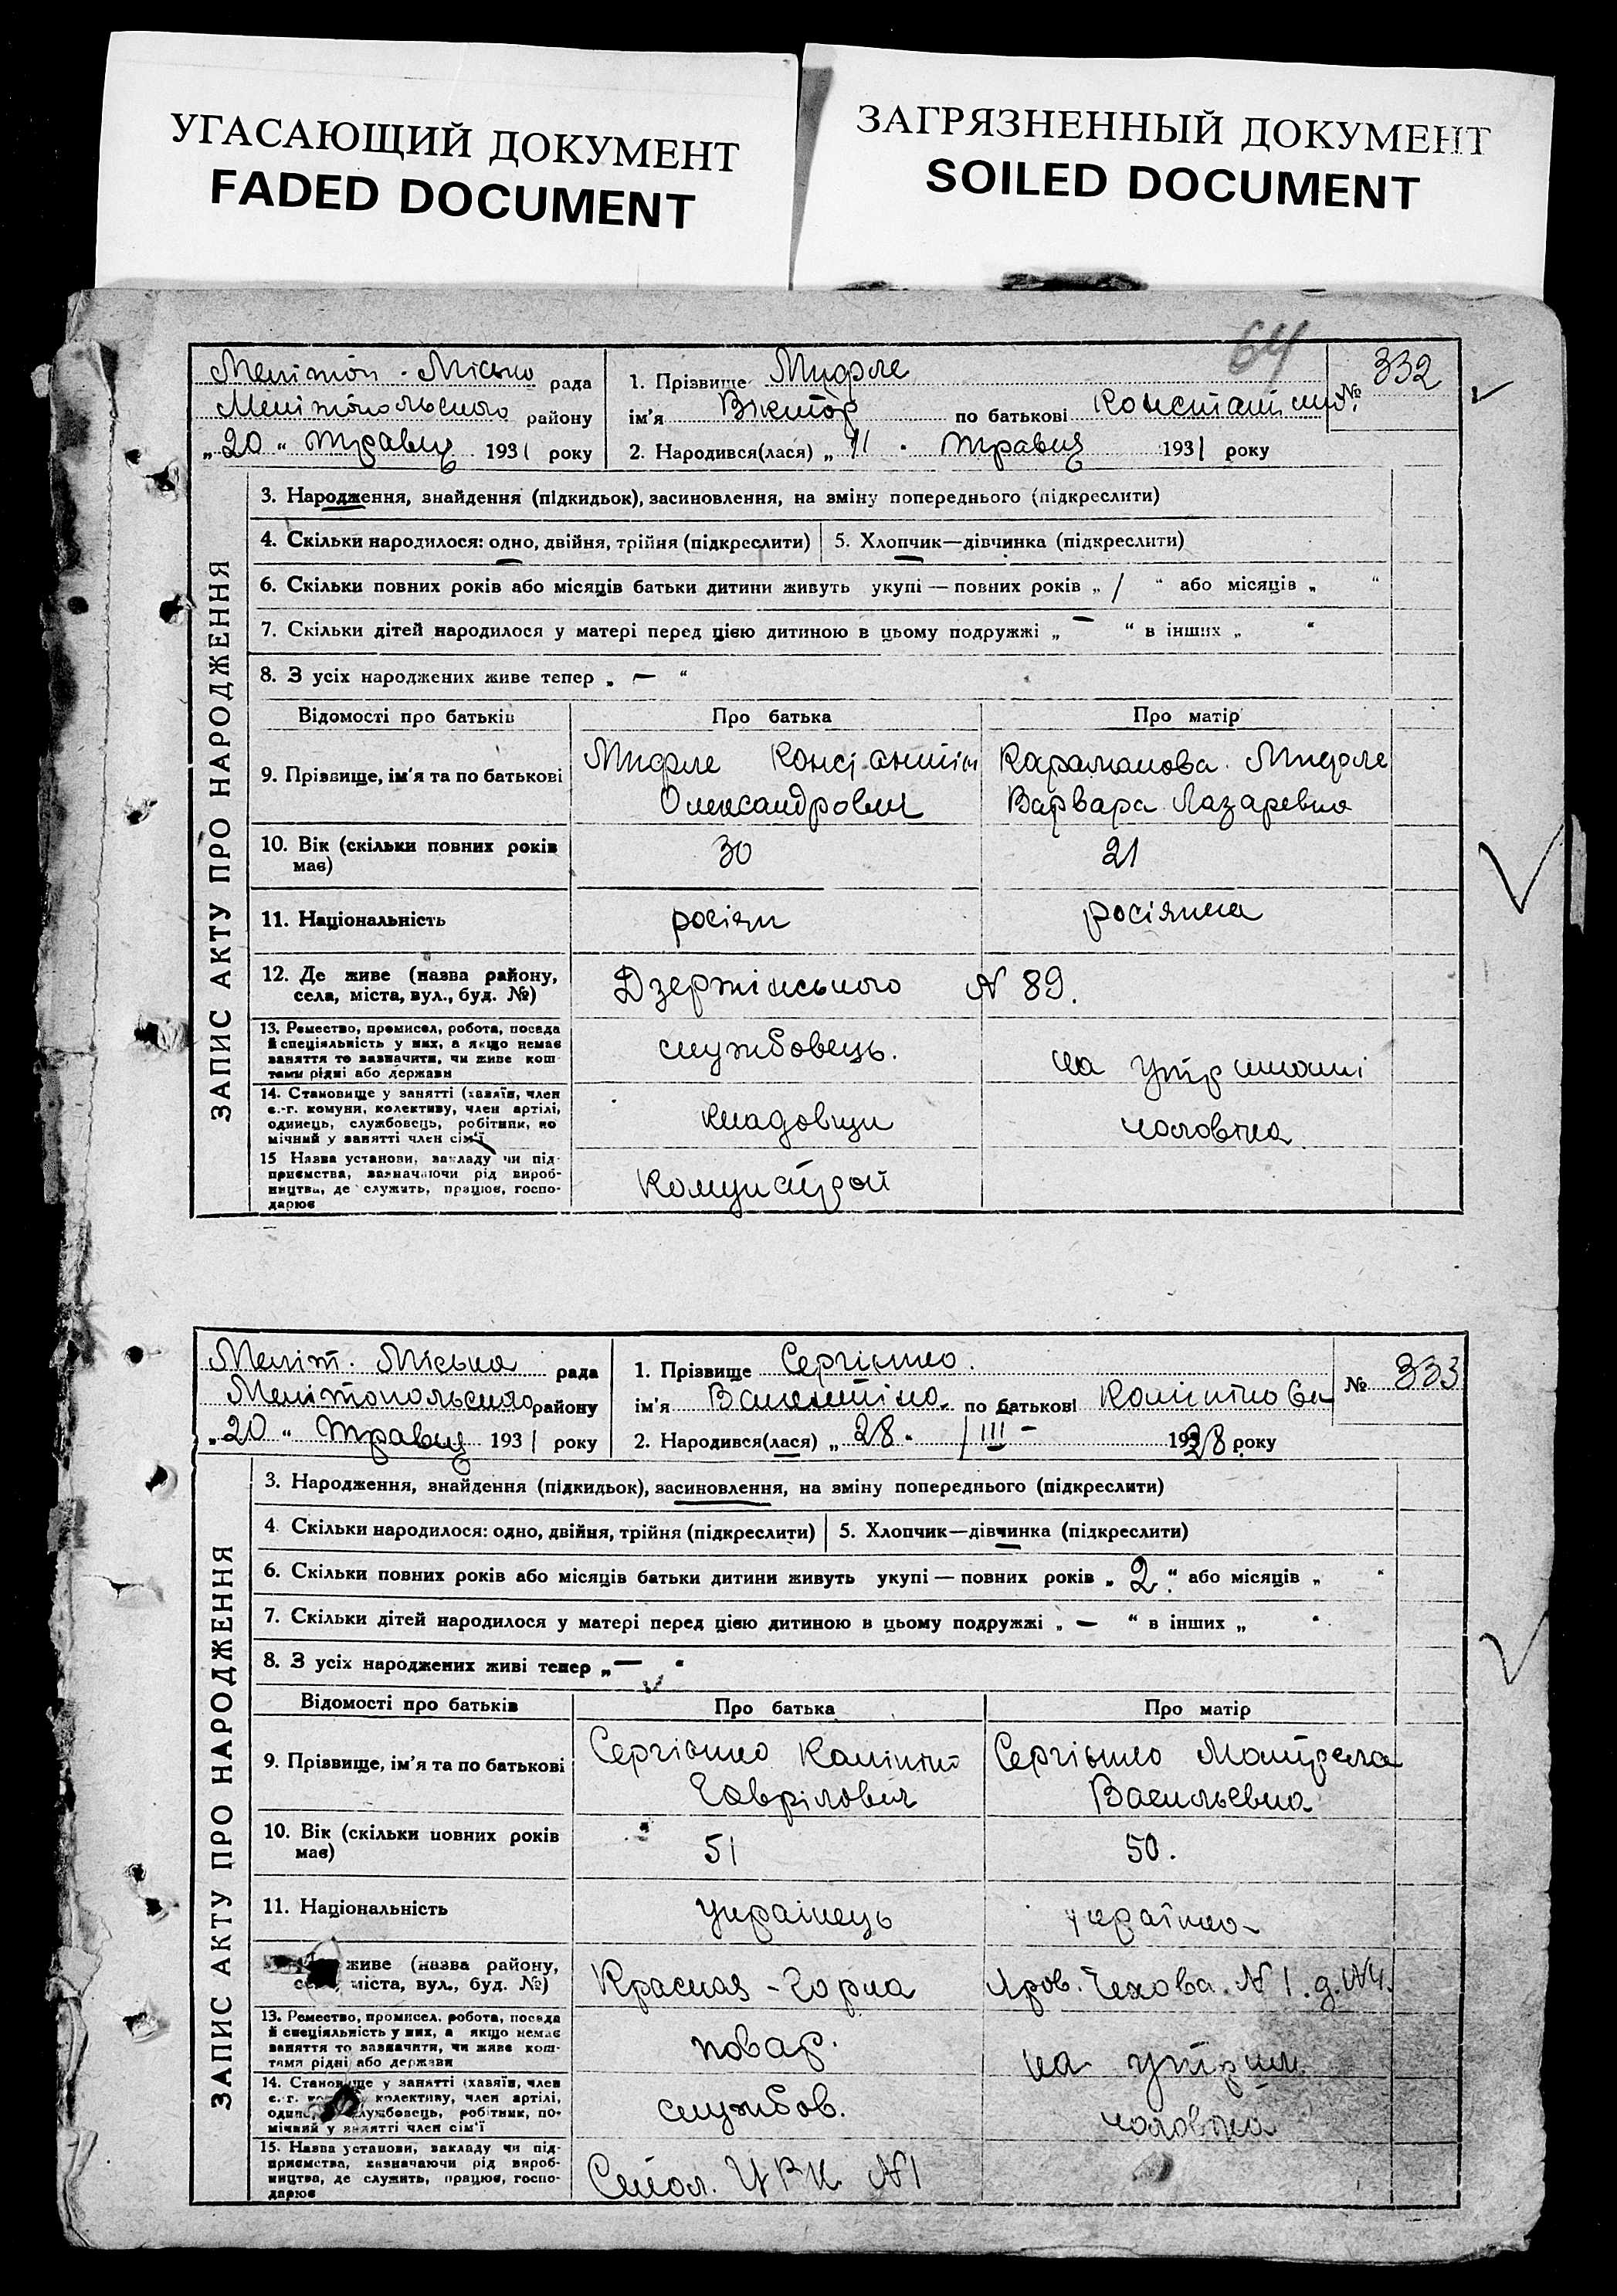 УГАСАЮЩИЙ ДОКУМЕНТ
FADED DOCUMENT
ЗАГРЯЗНЕННЫЙ ДОКУМЕНТ
SOILED DOCUMENT
64
Мелітоп. Міська рада
Мелітопольського району
„20“ травня 1931 року
1. Прізвище Мифле
ім'я Віктор по батькові Константино.
2. Народився(лася) „11 травня 1931 року
№ 332
ЗАПИС АКТУ ПРО НАРОДЖЕННЯ
3. Народження, знайдення (підкидьок), засиновлення, на зміну попереднього (підкреслити)
4. Скільки народилося: одно, двійня, трійня (підкреслити) 5. Хлопчик—дівчинка (підкреслити)
6. Скільки повних років або місяців батьки дитини живуть укупі — повних років „ / “ або місяців „ “
7. Скільки дітей народилося у матері перед цією дитиною в цьому подружжі „ — “ в інших „ “
8. З усіх народжених живе тепер „ — “
Відомості про батьків Про батька Про матір
9. Прізвище, ім'я та по батькові
Мифле Констянтін
Олександрович
Караманова Мифле
Варвара Лазаревна
10. Вік (скільки повних років
має)
30 21
11. Національність росіян росіянка
12. Де живе (назва району,
села, міста, вул., буд. №)
Дзержінського N 89.
13. Ремество, промисел, робота, посада
й спеціяльність у них, а якщо немає
заняття то зазначити, чи живе кош-
тами рідні або держави
службовець.
на утриманні
14. Становище у занятті (хазяїн, член
с.-г. комуни, колективу, член артілі,
одинець, службовець, робітник, по
мічний у занятті член сім'ї
кладовщи
чоловіка
15 Назва установи, закладу чи під-
приємства, зазначаючи рід вироб-
ництва, де служить, працює, госпо-
дарює
Комунстрой
Меліт. Міська рада
Мелітопольського району
„20“ травня 1931 року
1. Прізвище Сергієнко.
ім'я Валентіна по батькові
2. Народився(лася) „28 III – 1928 року
№ 333
ЗАПИС АКТУ ПРО НАРОДЖЕННЯ
3. Народження, знайдення (підкидьок), засиновлення, на зміну попереднього (підкреслити)
4. Скільки народилося: одно, двійня, трійня (підкреслити) 5. Хлопчик—дівчинка (підкреслити)
6. Скільки повних років або місяців батьки дитини живуть укупі — повних років „ 2 “ або місяців „ “
7. Скільки дітей народилося у матері перед цією дитиною в цьому подружжі „ — “ в інших „ “
8. З усіх народжених живі тепер „ — “
Відомості про батьків Про батька Про матір
9. Прізвище, ім'я та по батькові
Сергієнко
Гаврілович
Сергієнко Мотрела
Васильевна
10. Вік (скільки повних років
має)
51 50.
11. Національність українець українка
живе (назва району,
міста, вул., буд. №)
Красная-Горка пров. Чехова. N 1.
13. Ремество, промисел, робота, посада
й спеціяльність у них, а якщо немає
заняття то зазначити, чи живе кош-
тами рідні або держави
повар.
на утрим.
14. Становище у занятті (хазяїн, член
с.-г. колективу, член артілі,
службовець, робітник, по-
мічний у занятті член сім'ї
службов.
чоловіка
15. Назва установи, закладу чи під-
приємства, зазначаючи рід вироб-
ництва, де служить, працює, госпо-
дарює
Стол. ЦРК N1